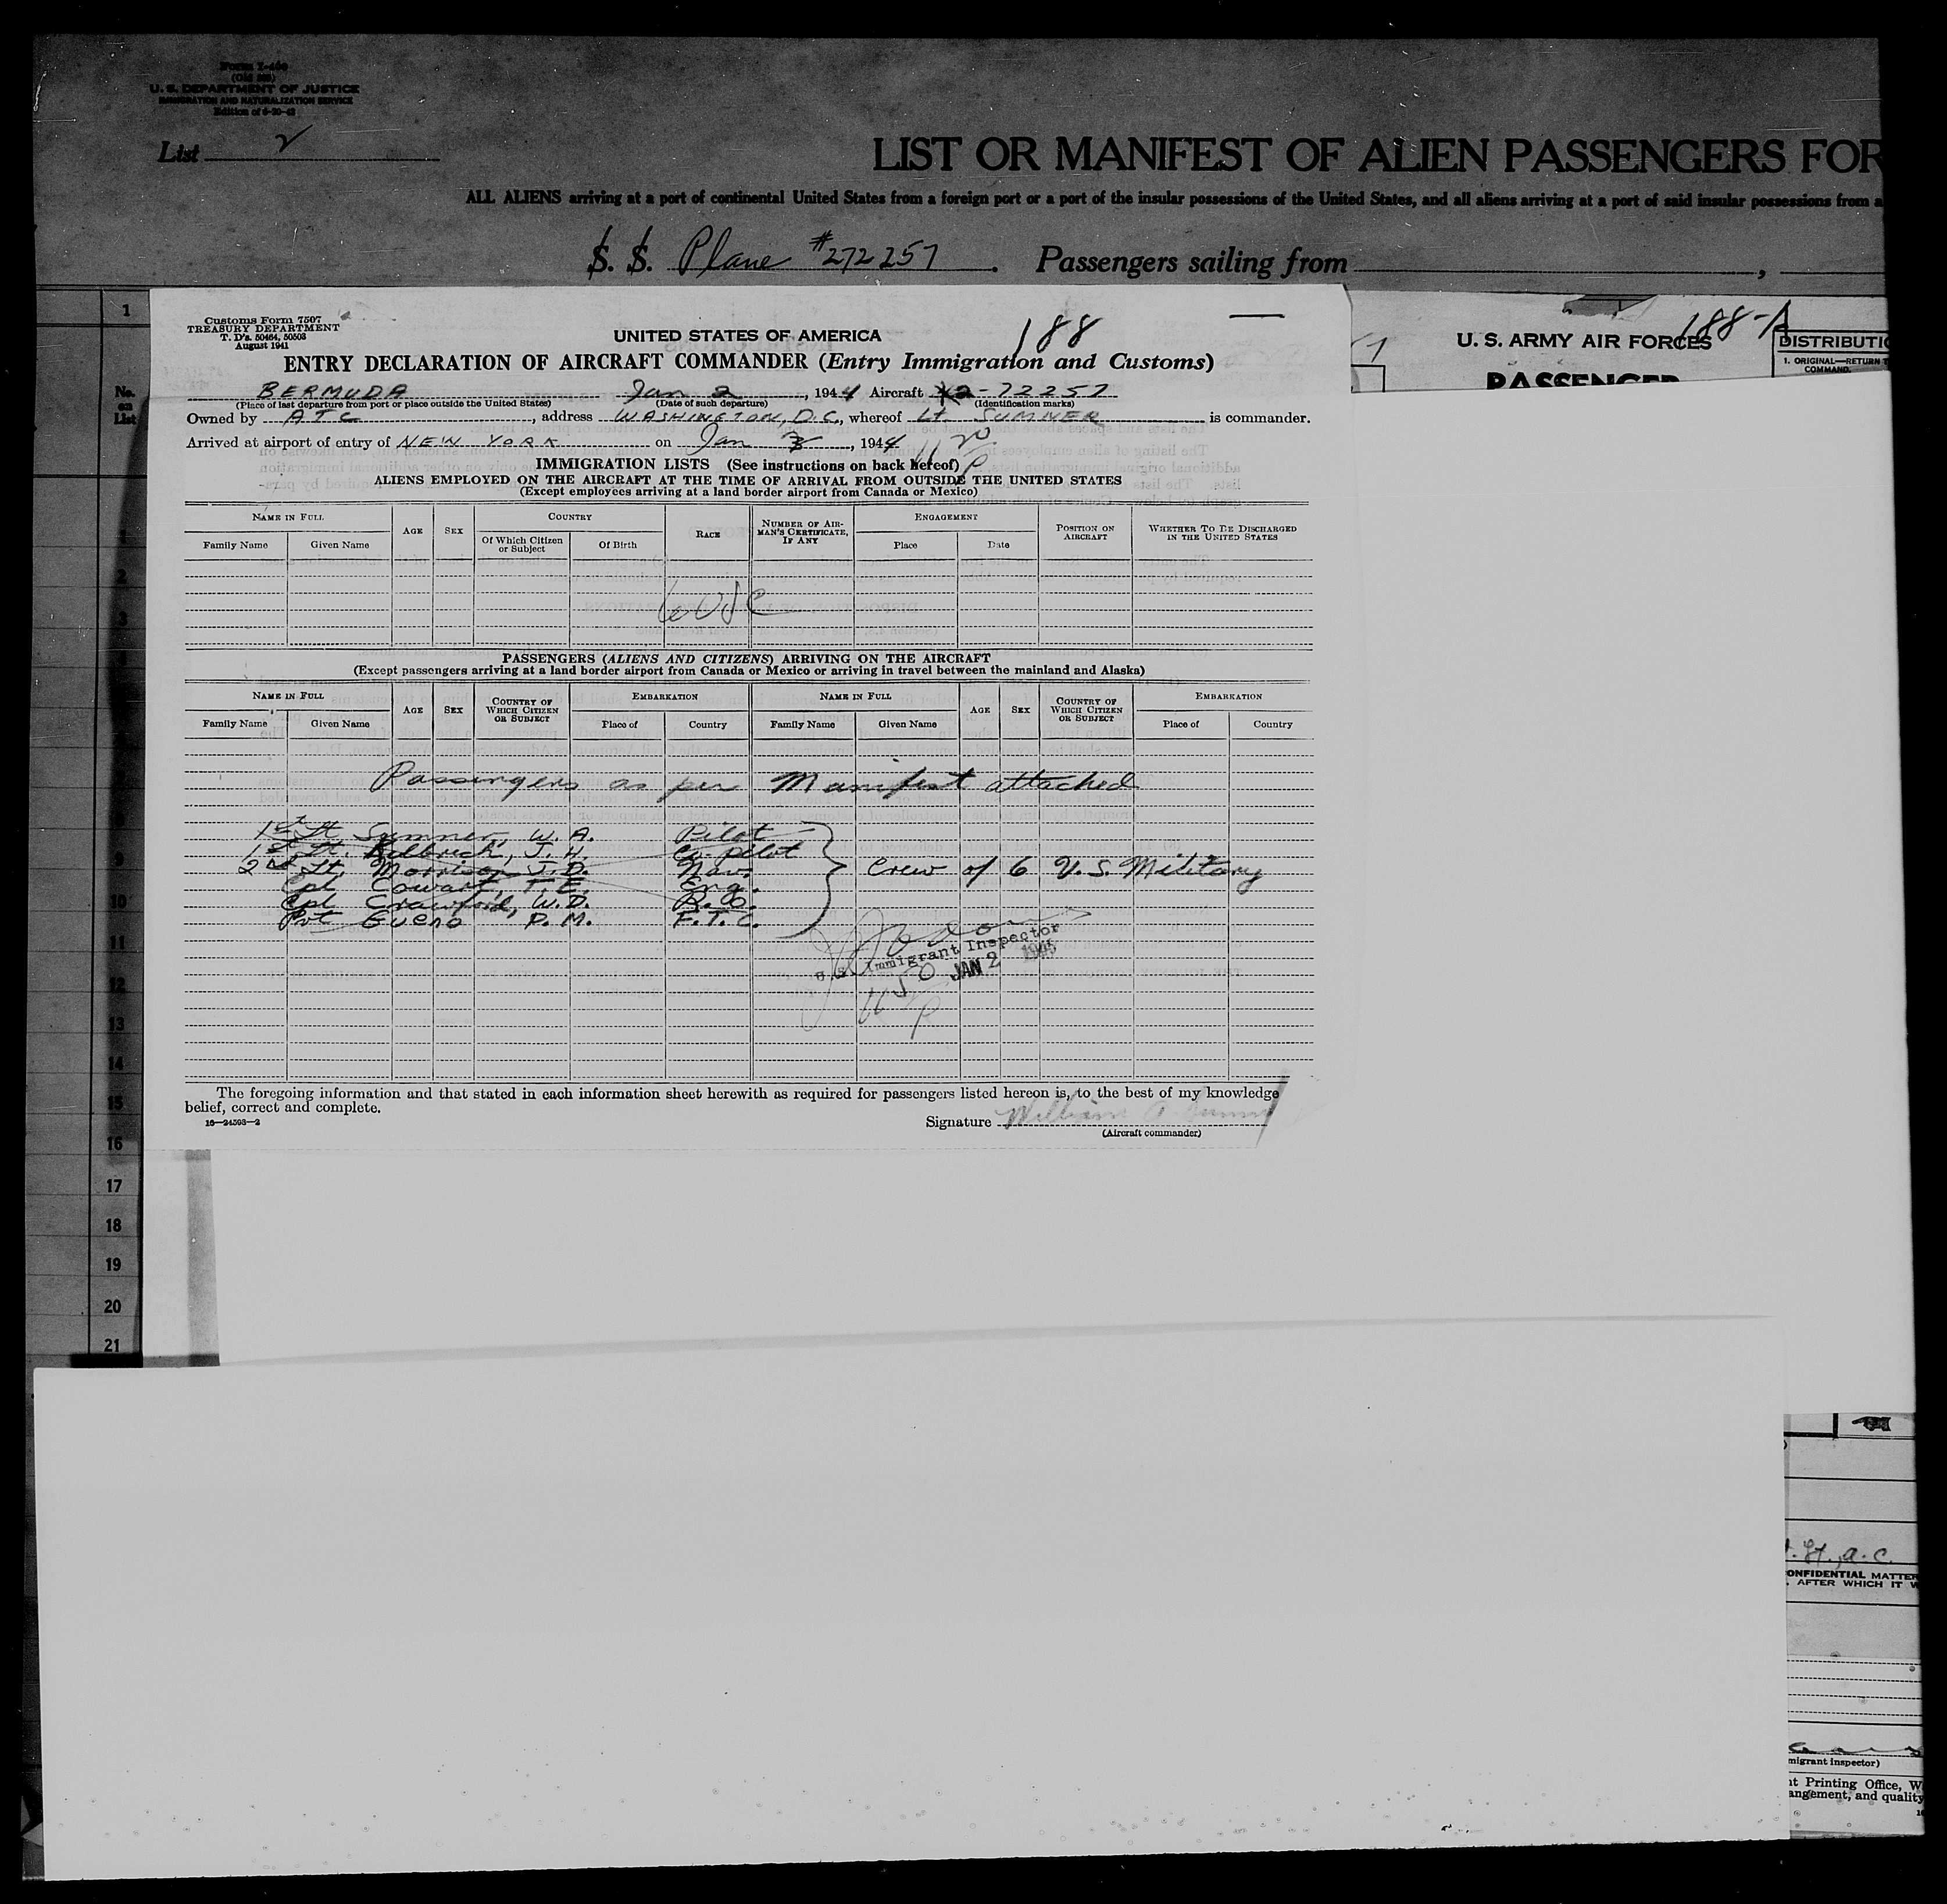 Form I-466
(Old 500)
U. S. DEPARTMENT OF JUSTICE
IMMIGRATION AND NATURALIZATION SERVICE
List 2
LIST OR MANIFEST OF ALIEN PASSENGERS FOR
ALL ALIENS arriving at a port of continental United States from a foreign port or a port of the insular possessions of the United States, and all aliens arriving at a port of said insular possessions from a
S. S. Plane #272257. Passengers sailing from ,
No. on List
1
Customs Form 7507
TREASURY DEPARTMENT
T. D's. 50464, 50503
August 1941
UNITED STATES OF AMERICA
188
ENTRY DECLARATION OF AIRCRAFT COMMANDER (Entry Immigration and Customs)
BERMUDA Jan 2, 1944 Aircraft 42-72257
(Place of last departure from port or place outside the United States) (Date of such departure) (Identification marks)
Owned by ATC, address WASHINGTON, D.C., whereof Lt. SUMNER is commander.
Arrived at airport of entry of NEW YORK on Jan 2, 1944 11 20 P
IMMIGRATION LISTS (See instructions on back hereof)
ALIENS EMPLOYED ON THE AIRCRAFT AT THE TIME OF ARRIVAL FROM OUTSIDE THE UNITED STATES
(Except employees arriving at a land border airport from Canada or Mexico)
NAME IN FULL AGE SEX COUNTRY RACE NUMBER OF AIRMAN'S CERTIFICATE, IF ANY ENGAGEMENT POSITION ON AIRCRAFT WHETHER TO BE DISCHARGED IN THE UNITED STATES
Family Name Given Name Of Which Citizen or Subject Of Birth Place Date
6 USC
PASSENGERS (ALIENS AND CITIZENS) ARRIVING ON THE AIRCRAFT
(Except passengers arriving at a land border airport from Canada or Mexico or arriving in travel between the mainland and Alaska)
NAME IN FULL AGE SEX COUNTRY OF WHICH CITIZEN OR SUBJECT EMBARKATION NAME IN FULL AGE SEX COUNTRY OF WHICH CITIZEN OR SUBJECT EMBARKATION
Family Name Given Name Place of Country Family Name Given Name Place of Country
Passengers as per Manifest attached
1st Lt Sumner, W. A. Pilot
1st Lt. J. H. Co-pilot
2nd Lt. Morrison J. D. Nav.
Cpl Cowart, T. E. Eng.
Cpl Crawford, W. D. R. O.
Pvt Bueno R. M. F. T. C.
Crew of 6 U. S. Military
U. S. Immigrant Inspector
JAN 2 1945
11 50 P
The foregoing information and that stated in each information sheet herewith as required for passengers listed hereon is, to the best of my knowledge
belief, correct and complete.
16—24593—2
Signature William A. Sumner
(Aircraft commander)
2
3
9
10
11
12
13
14
15
16
17
18
19
20
21
188-A
U. S. ARMY AIR FORCES
PASSENGER
DISTRIBUTIO
1. ORIGINAL—RETURN T
COMMAND.
t. Lt., a.c.
ONFIDENTIAL MATTER
. AFTER WHICH IT W
migrant Inspector)
nt Printing Office, W
angement, and quality